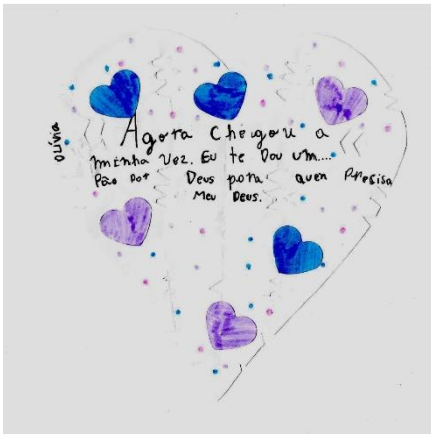 Olívia
Agora Chegou a
minha vez. Eu te Dou um....
Pão Por Deus para quen Precisa
Meu Deus.